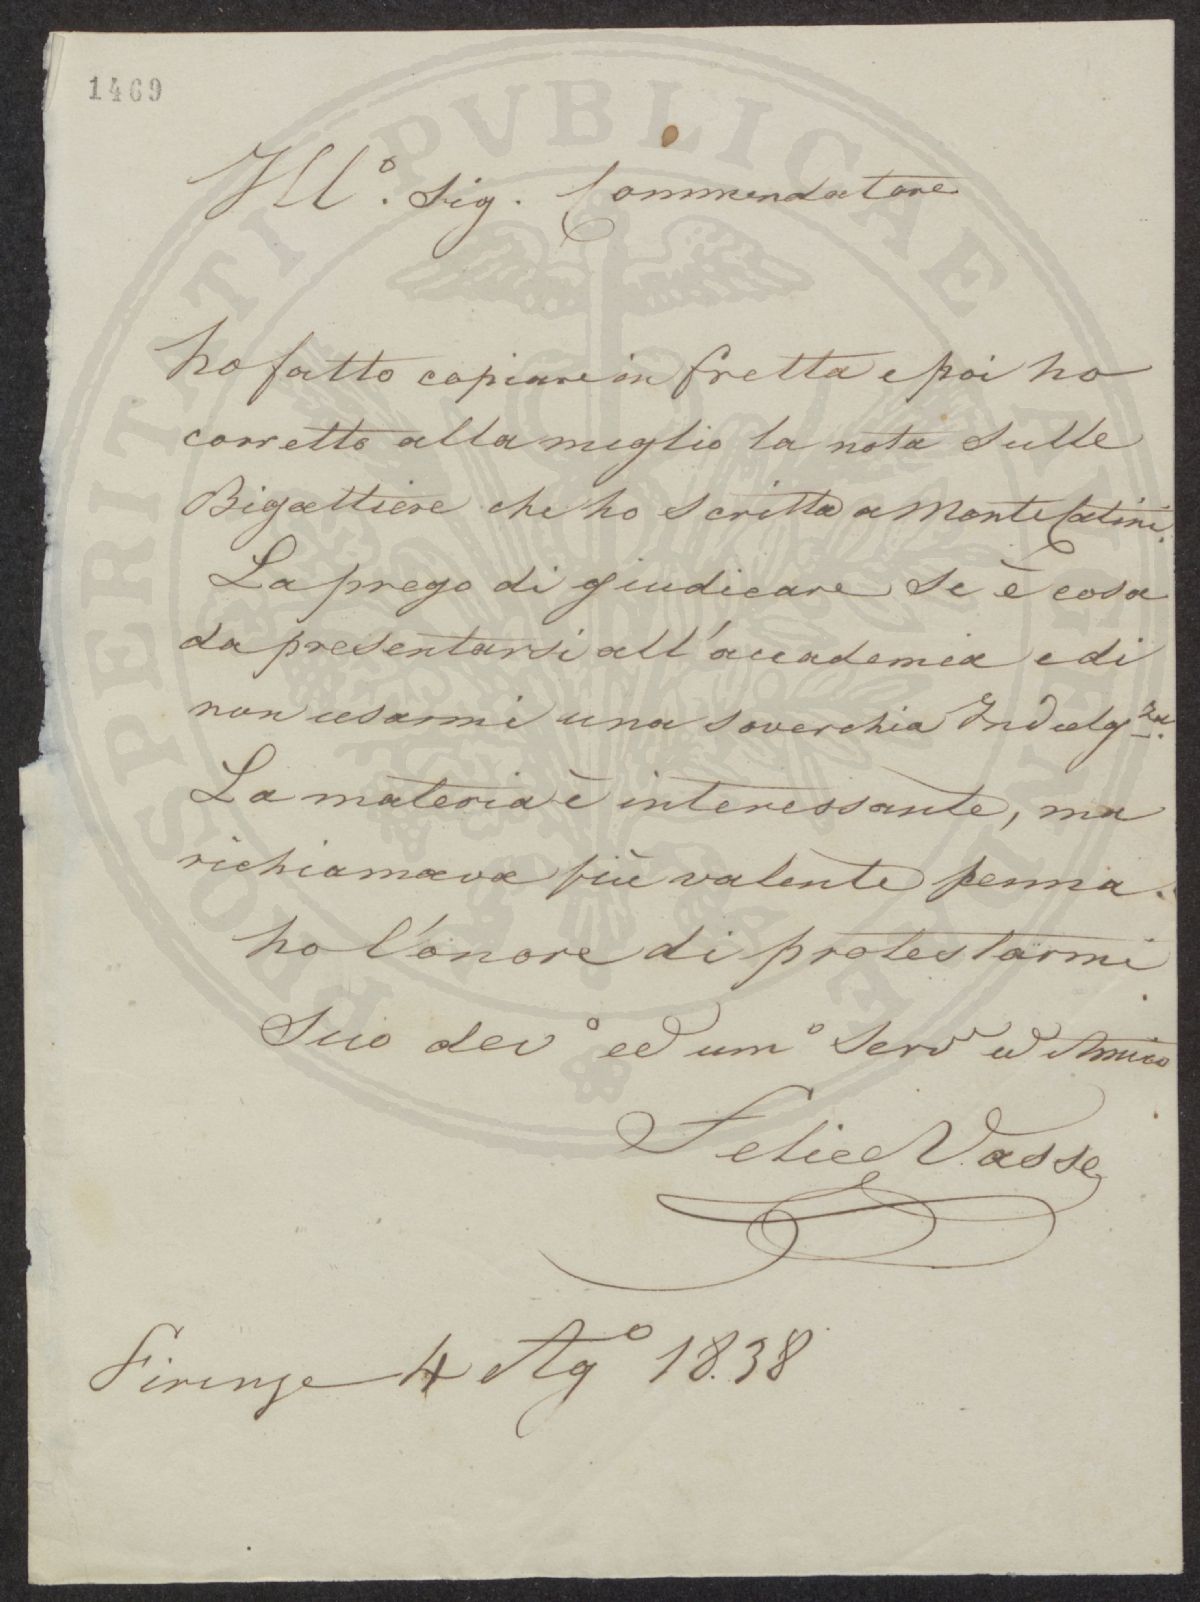 1469
Ill.º Sig. Commendatore
ho fatto copiare in fretta e poi ho
corretto alla meglio la nota sulle
Bigattiere che ho scritta a Monte Catini.
La prego di giudicare se è cosa
da presentarsi all'accademia e di
non usarmi una soverchia Indulgza.
La materia è interessante, ma
richiamava più valente penna.
ho l'onore di protestarmi
Suo devº ed umº Servº ed Amico
Felice Vasse
Firenze 4 Agº 1838
PROSPERITATI PVBLICAE AVGENDAE